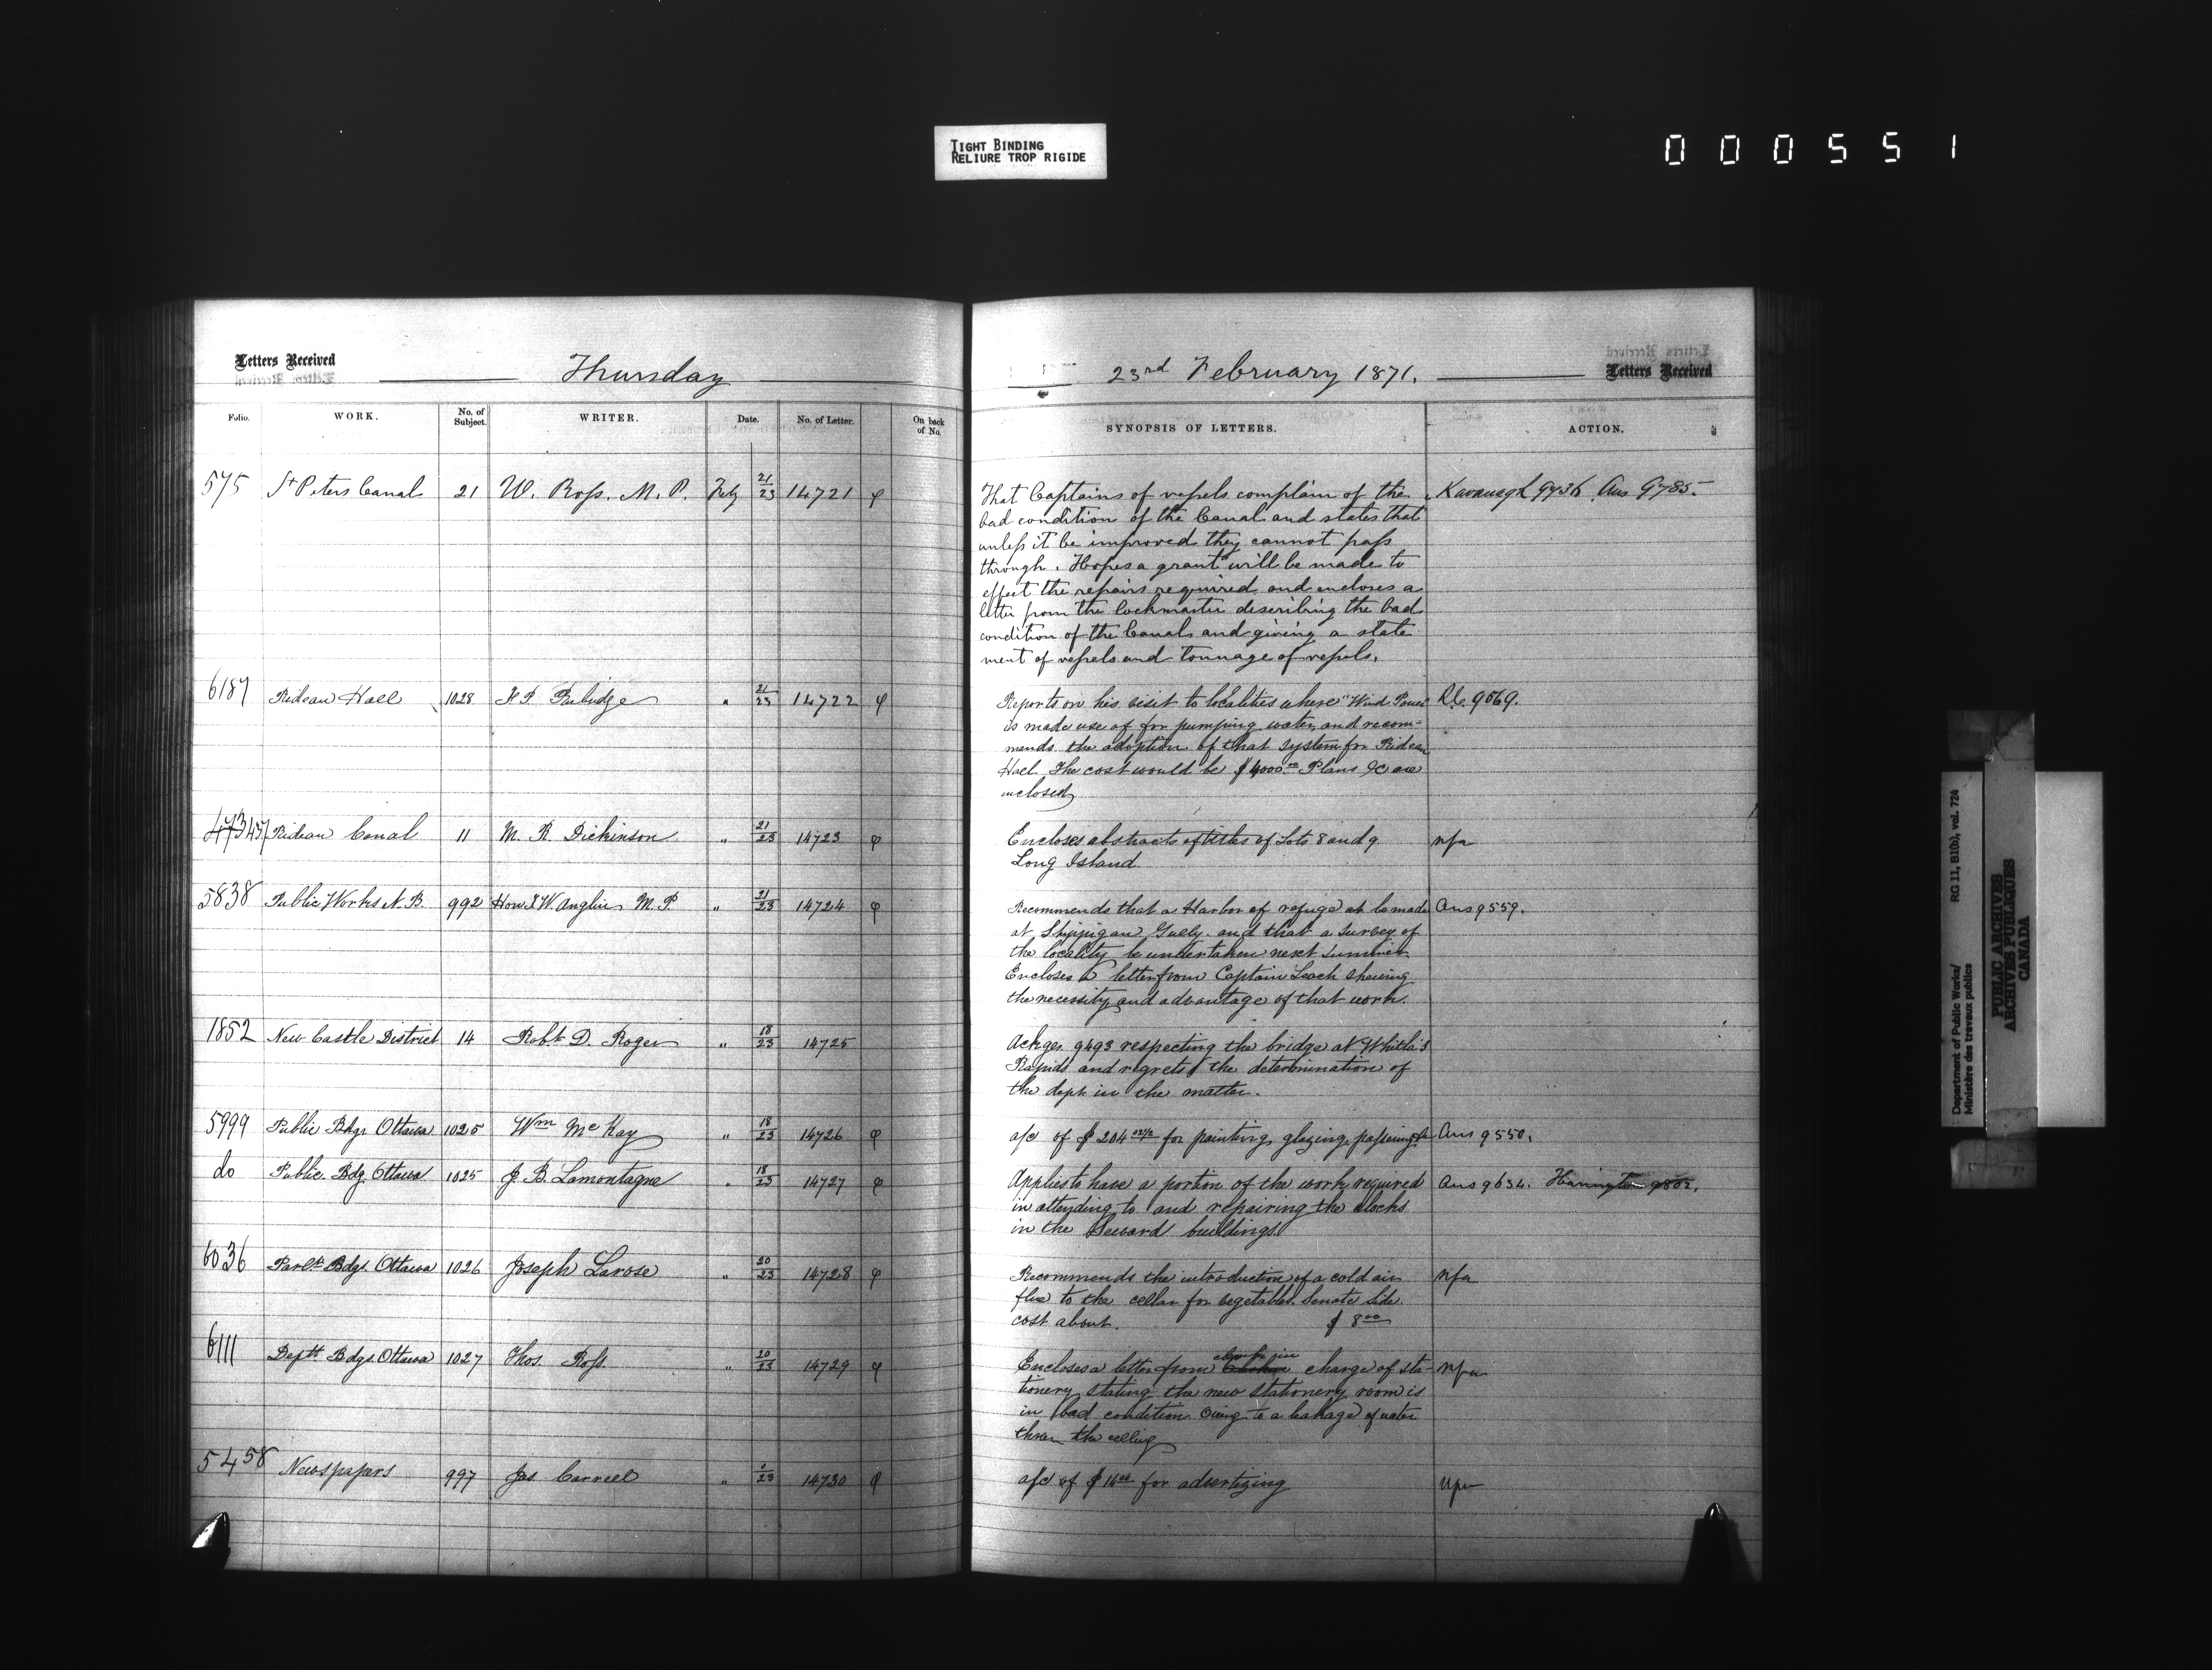 TIGHT BINDING
RELIURE TROP RIGIDE
000551
Letters Received
Thursday
23rd February 1871.
Letters Received
Folio. WORK. No. of Subject. WRITER. Date. No. of Letter. On back of No.
SYNOPSIS OF LETTERS. ACTION.
575 St Peters Canal 21 W. Ross. M. P. Feby 21/23 14721 φ
That Captains of vessels complain of the Kavanagh 9736 Ans 9785.
bad condition of the Canal and states that
unless it be improved they cannot pass
through. Hopes a grant will be made to
effect the repairs required and encloses a
letter from the lockmaster describing the bad
condition of the Canal and giving a state
ment of vessels and tonnage of vessels.
6187 Rideau Hall 1028 " 21/23 14722 φ
Reports on his visit to localities where "Wind Power 9569.
is made use of for pumping water and recom-
mends the adoption of that system for Rideau
Hall The cost would be $4000.00 Plans &c are
inclosed
Rideau Canal 11 M. K. Dickinson " 21/23 14723 φ
Encloses abstracts of titles of Lots 8 and 9 nfa
Long Island.
5838 Public Works N. B. 992 Hon T W Anglin M. P. " 21/23 14724 φ
Recommends that a Harbor of refuge at be made Ans 9559.
at Shippigan Gully. and that a survey of
the locality be undertaken next summer
Encloses a letter from Captain Leach shewing
the necessity and advantage of that work.
1852 New Castle District 14 Robt D. Roger " 18/23 14725
Ackges 9493 respecting the bridge at Whitla's
Rapids and regrets the determination of
the dept in the matter.
5999 Public Bdgs Ottawa 1025 Wm McKay " 18/23 14726 φ
a/c of $204 for painting, glazing, Ans 9550.
do Public Bdg. Ottawa 1025 J. B. Lamontagne " 18/23 14727 φ
Applies to have a portion of the work required Ans 9634. Harrington 9802.
in attending to and repairing the clocks
in the buildings
6036 Parlt Bdgs. Ottawa 1026 Joseph Larose " 20/23 14728 φ
Recommends the introduction of a cold air nfa
flue to the cellar for vegetables. Senate side.
cost about. $8.00
6111 Deptl Bdgs. Ottawa 1027 Thos. Ross. " 20/23 14729 φ
Encloses a letter from clerk in charge of sta- nfa
tionery stating the new stationery room is
in bad condition owing to a leakage of water
throu the ceiling
5458 Newspapers 997 Jas Carrell " 23 14730 φ
a/c of $ for advertizing nfa
Department of Public Works/
Ministère des travaux publics
RG 11, B1(b), vol. 724
PUBLIC ARCHIVES
ARCHIVES PUBLIQUES
CANADA